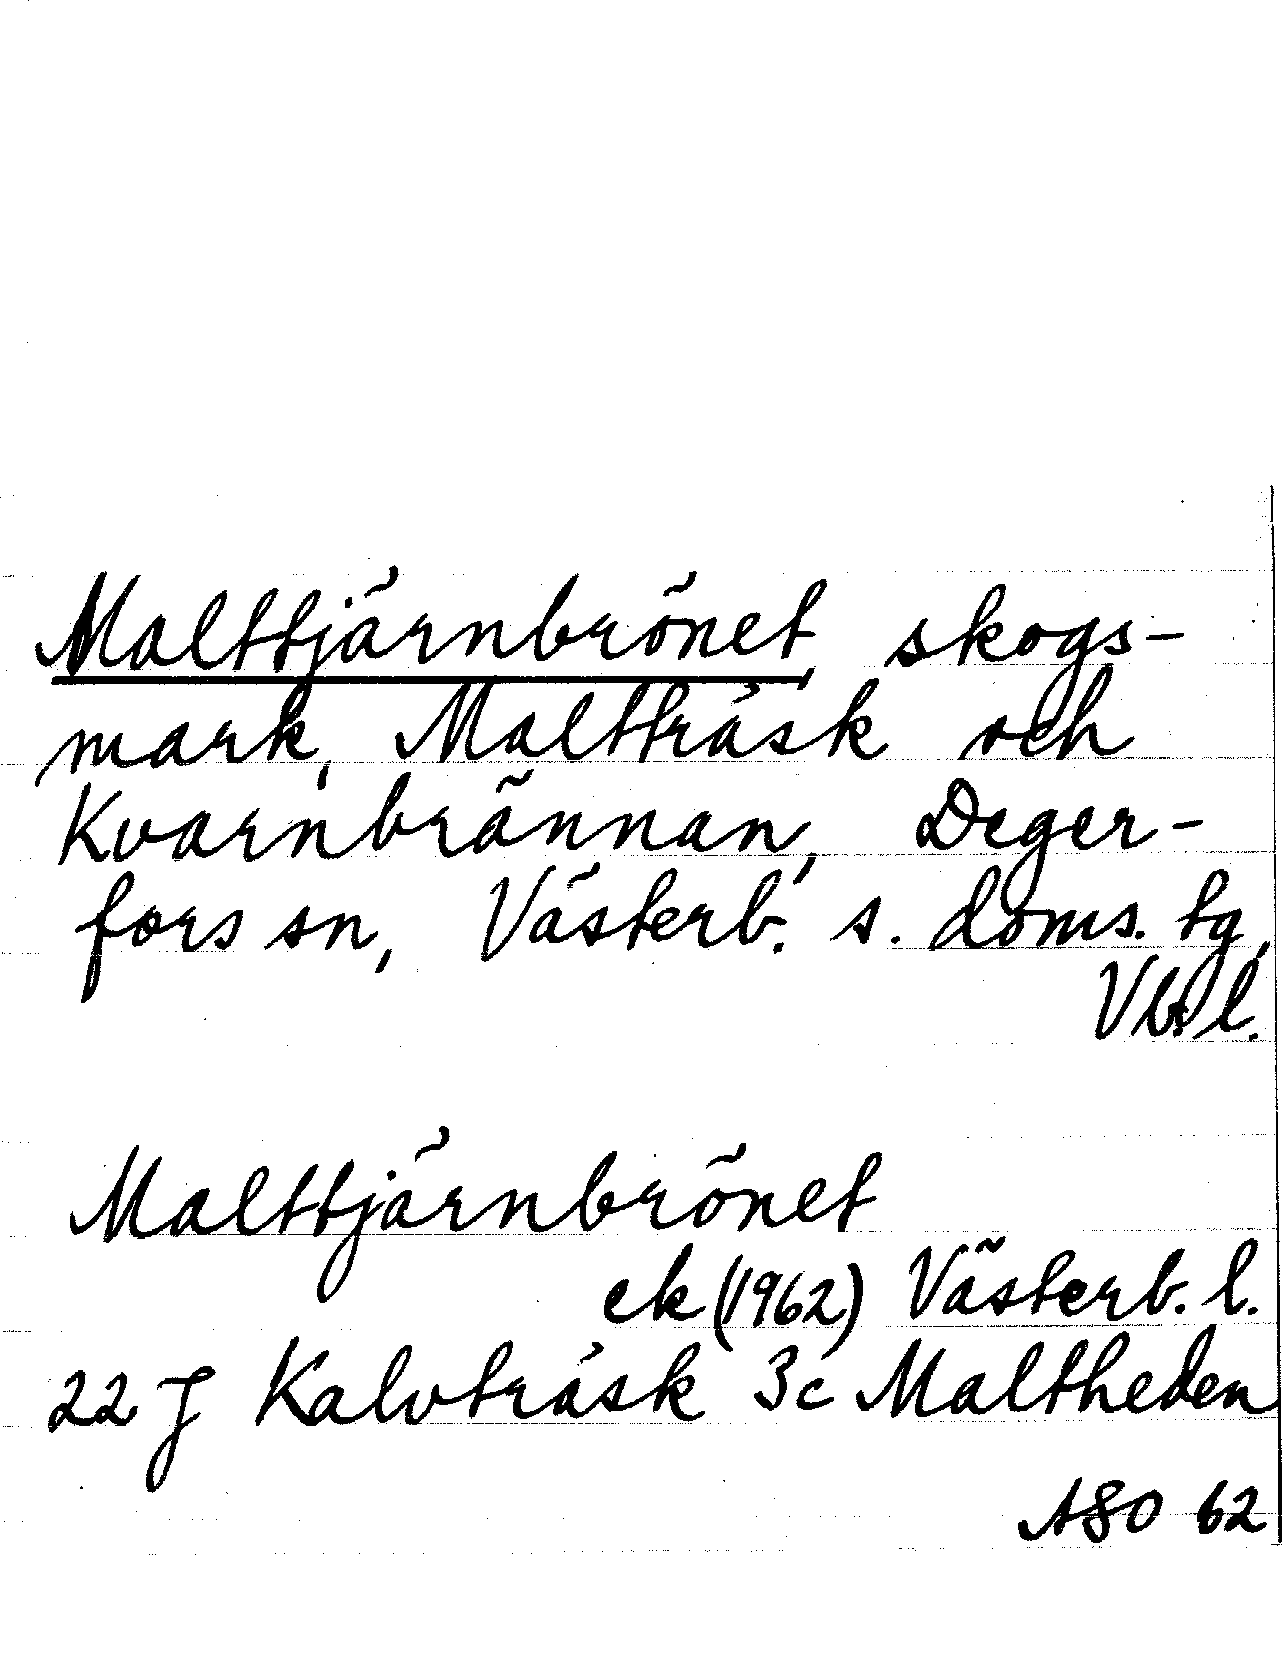 Malttjärnbrönet, skogs-
mark, Malträsk och
Kvarnbrännan, Deger-
fors sn, Västerb. s. doms. tg,
Vb. l.
Malttjärnbrönet
ek (1962) Västerb. l.
22 J Kalvträsk 3c Maltheden
ASO 62